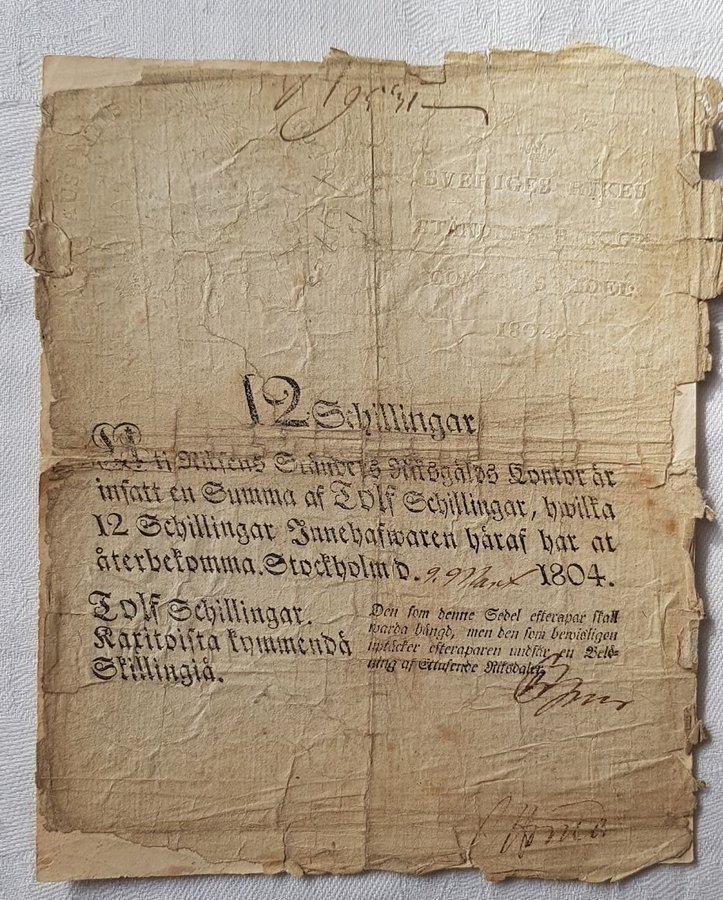 SVERIGES RIKES
STÄNDERS
SEDEL
1804
12 Schillingar
At i Riksens Ständers Riksgälds Kontor är
insatt en Summa af Tolf Schillingar, hwilka
12 Schillingar Innehafwaren häraf har at
återbekomma. Stockholm d. 9. Mart 1804.
Tolf Schillingar.
Kaxitoista kymmendä
Skillingiä.
Den som denne Sedel efterapar skall
warda hängd, men den som bewisligen
uptäcker efteraparen undfår en Belö-
ning af Ettusende Riksdaler.